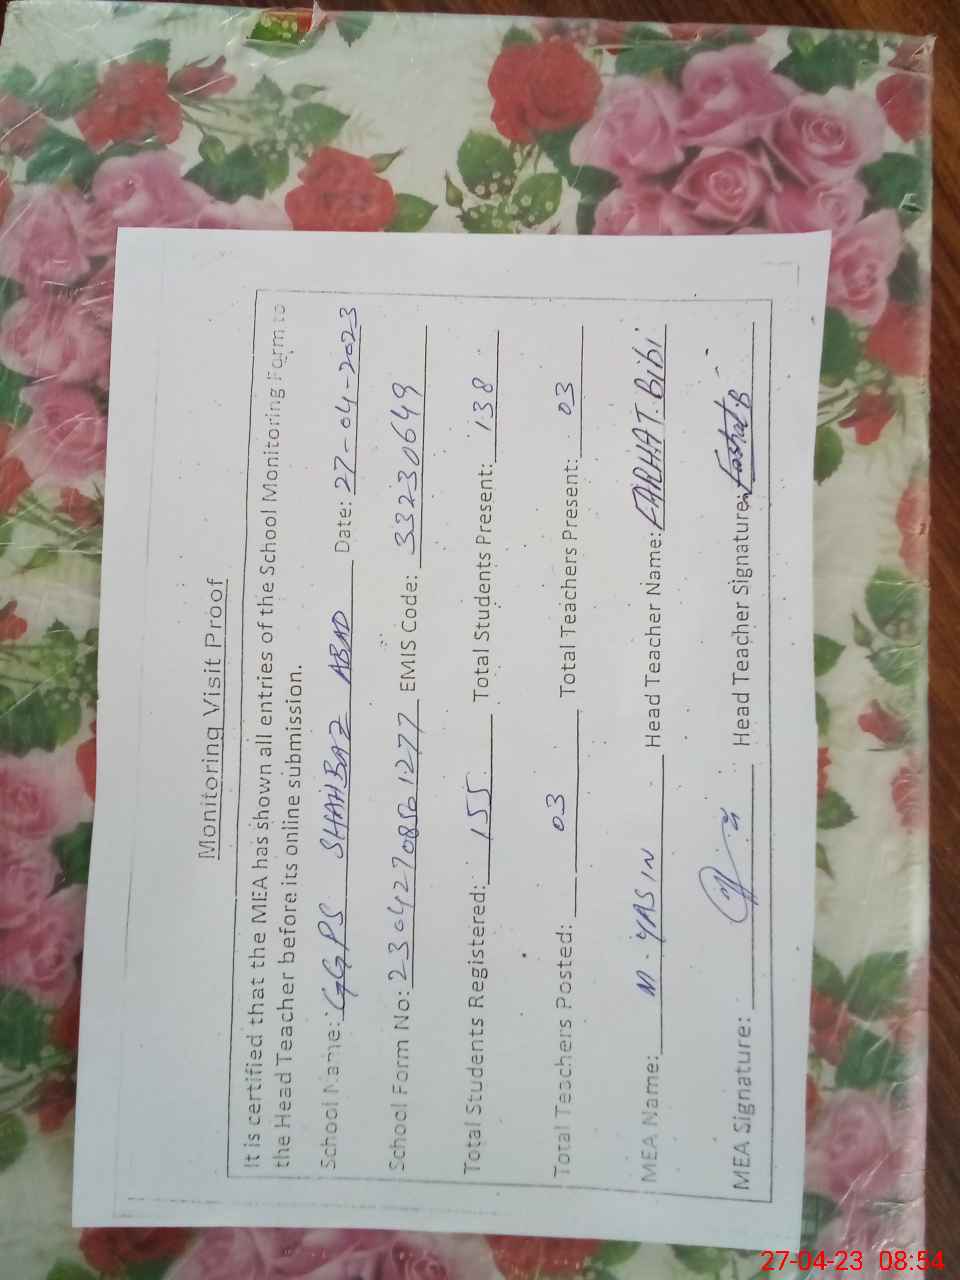 Monitoring Visit Proof
It is certified that the MEA has shown all entries of the School Monitoring Form to
the Head Teacher before its online submission.
School Name: GGPS SHAHBAZ ABAD Date: 27-04-2023
School Form No: 23042708561277 EMIS Code: 33230649
Total Students Registered: 155 Total Students Present: 138
Total Teachers Posted: 03 03 Total Teachers Present: 03
MEA Name: M. YASIN Head Teacher Name: FARHAT. Bibi
MEA Signature: Head Teacher Signature: Farhat.B
27-04-23 08:54